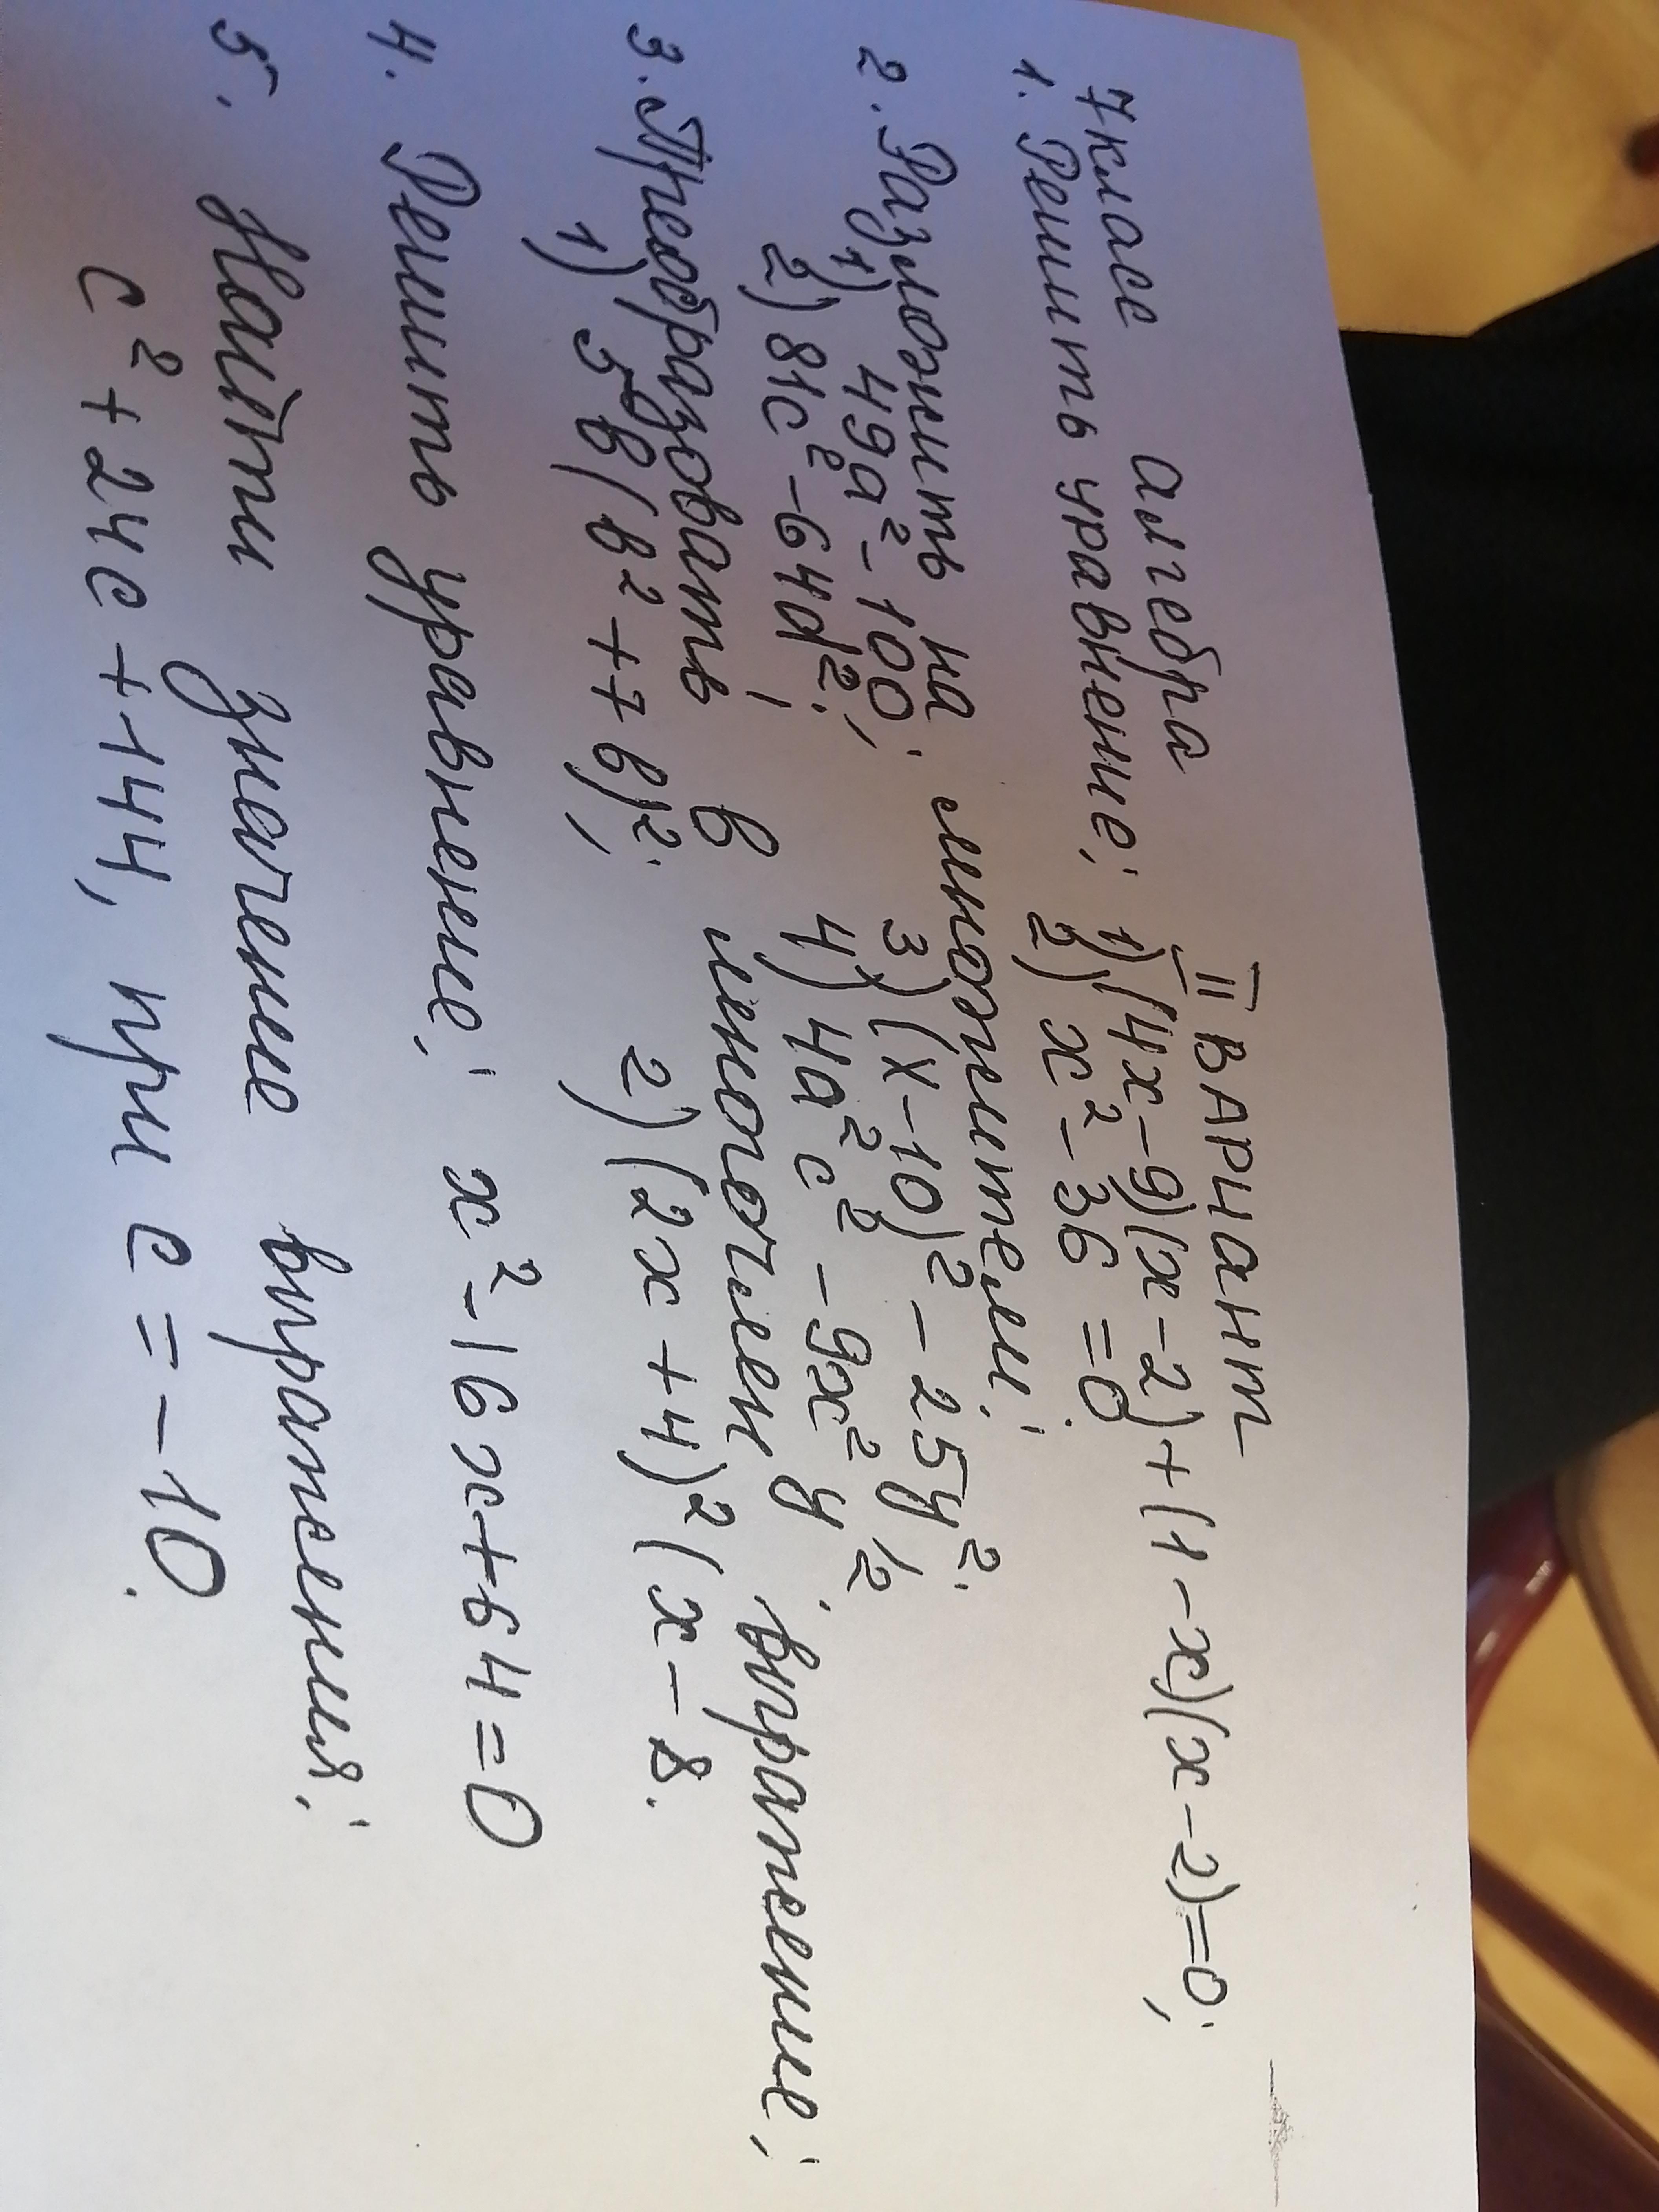 7 класс алгебра II вариант
1. Решить уравнение; 1) (4x-9)(x-2)+(1-x)(x-2)=0;
2) x²-36=0.
2. Разложить на множители:
1) 49a²-100; 3) (x-10)²-25y².
2) 81c²-64d²; 4) 4a²c²-9x²y²
3. Преобразовать в многочлен выражение;
1) 5b(b²+7b)²; 2) (2x+4)²(x-8.
4. Решить уравнение; x²-16x+64=0
5. Найти значение выражения;
c²+24c+144, при c=-10.